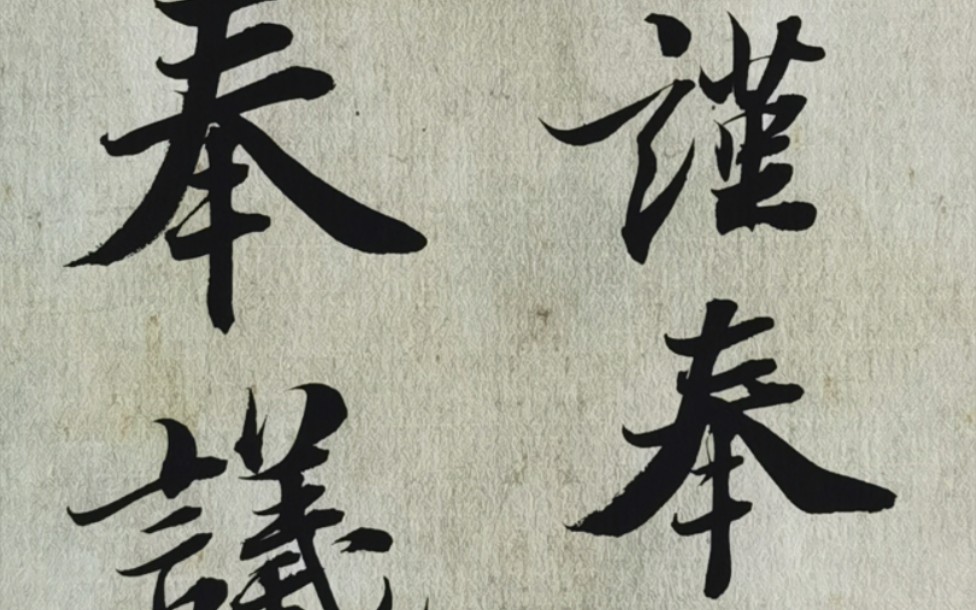 謹奉
奉議